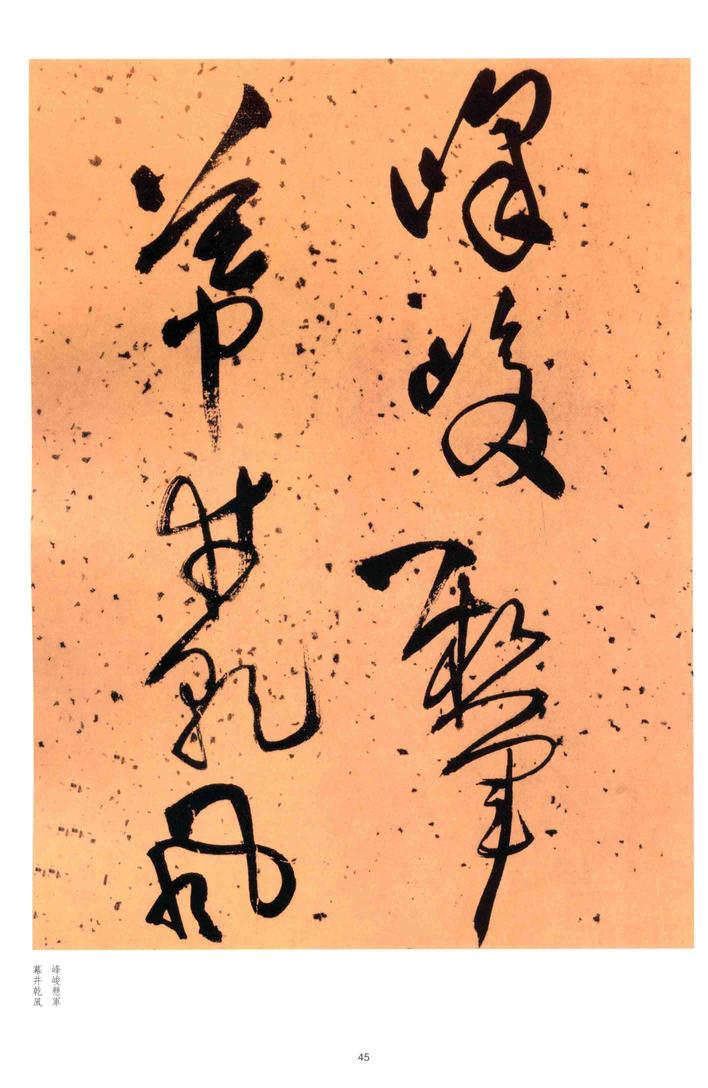 峰峻懸軍
幕井乾風
峰峻懸軍
幕井乾風
45